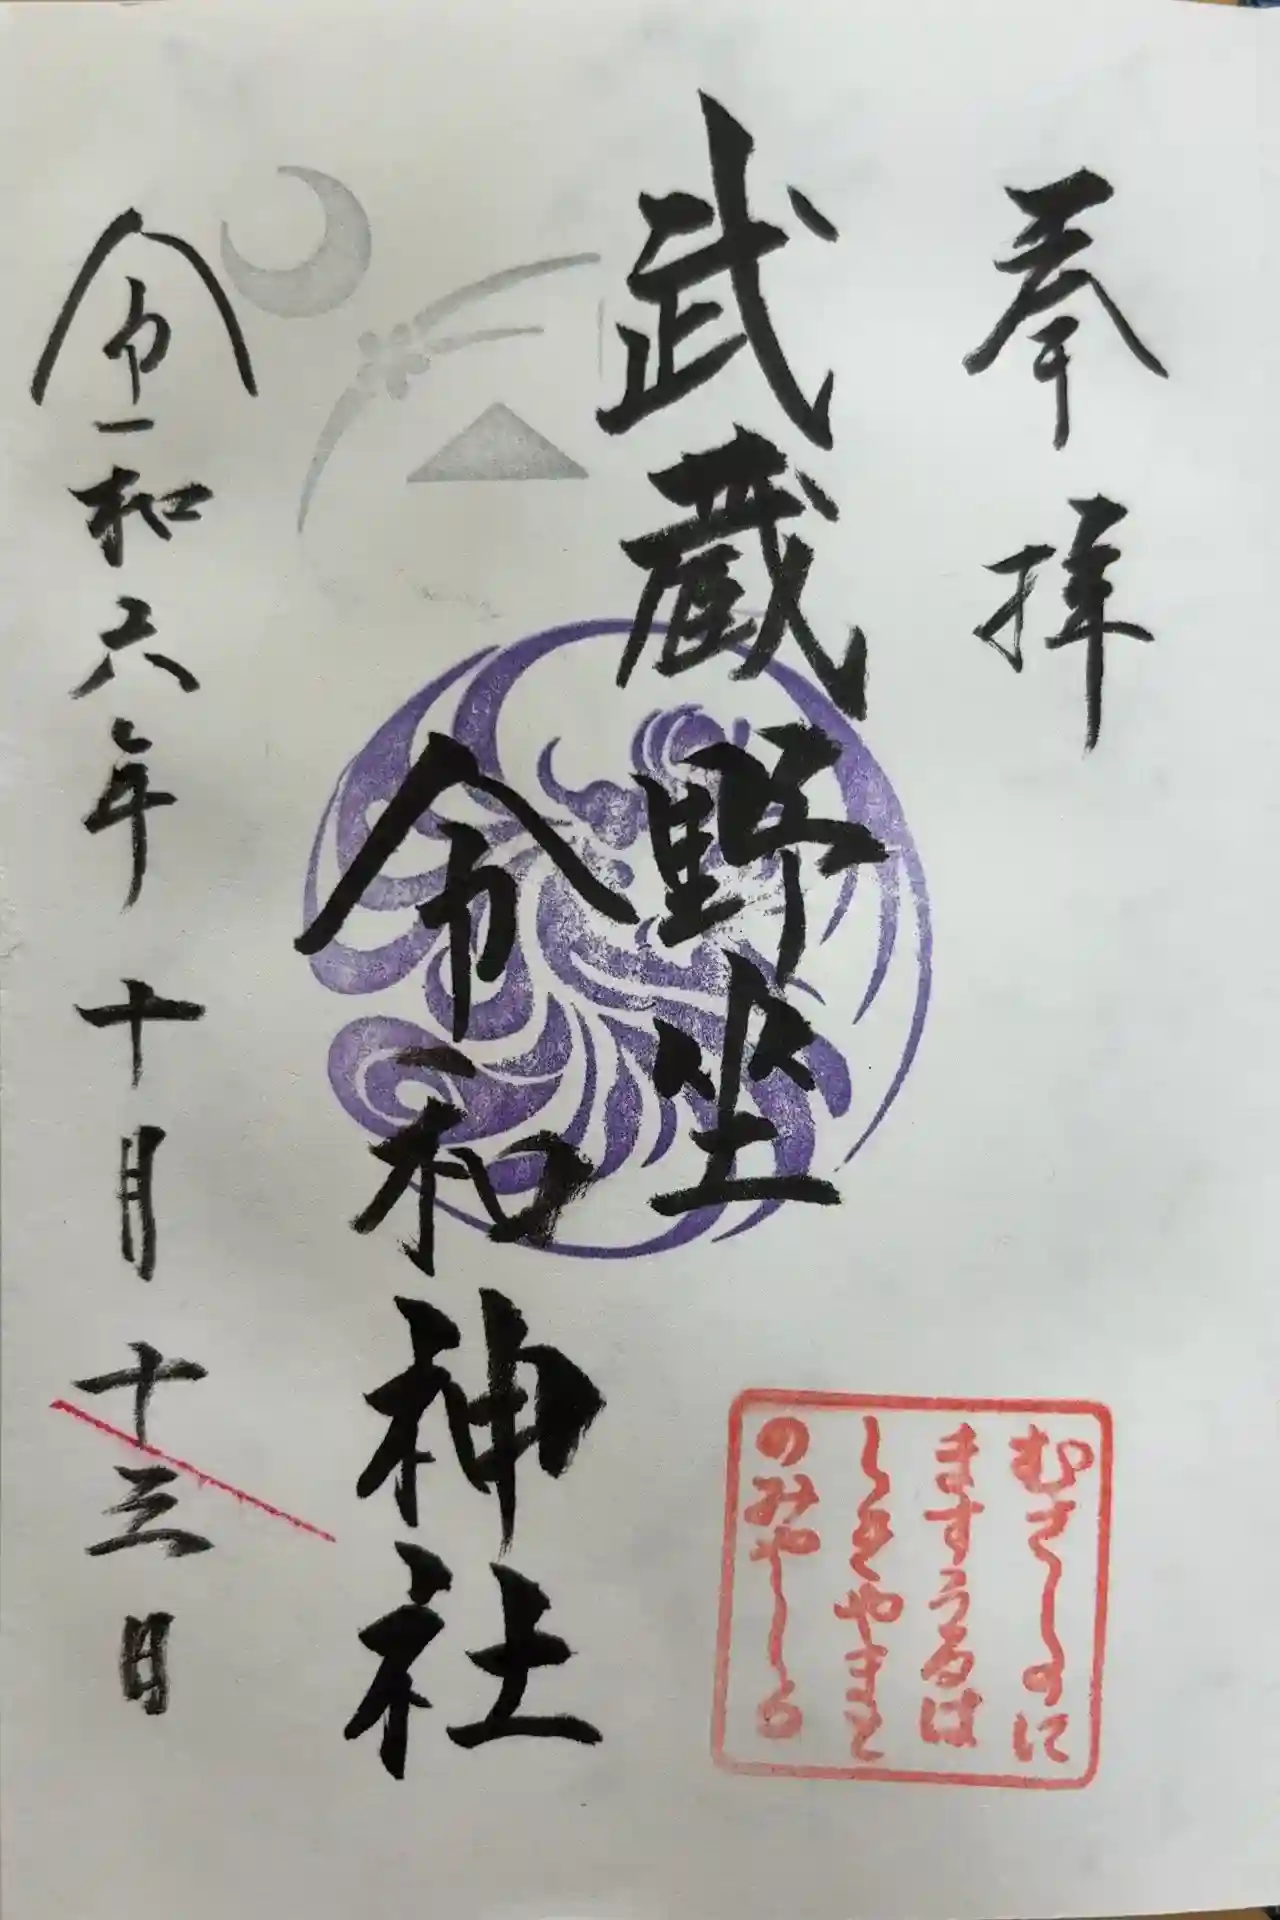 奉拝
武蔵野坐
令和神社
むさしのに
ますうるは
しきやまと
のみやしろ
令和六年十月十三日